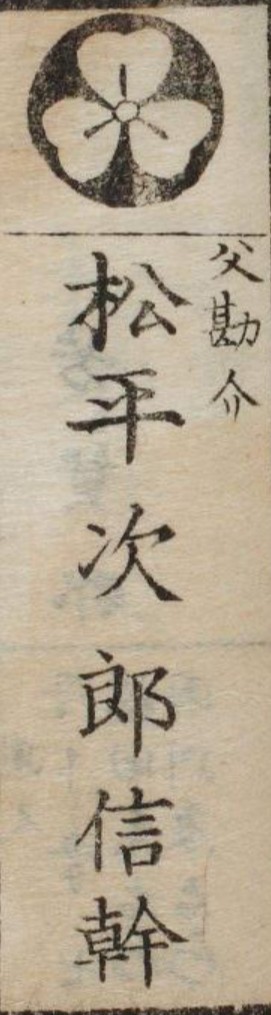 父勘介
松平次郎信幹